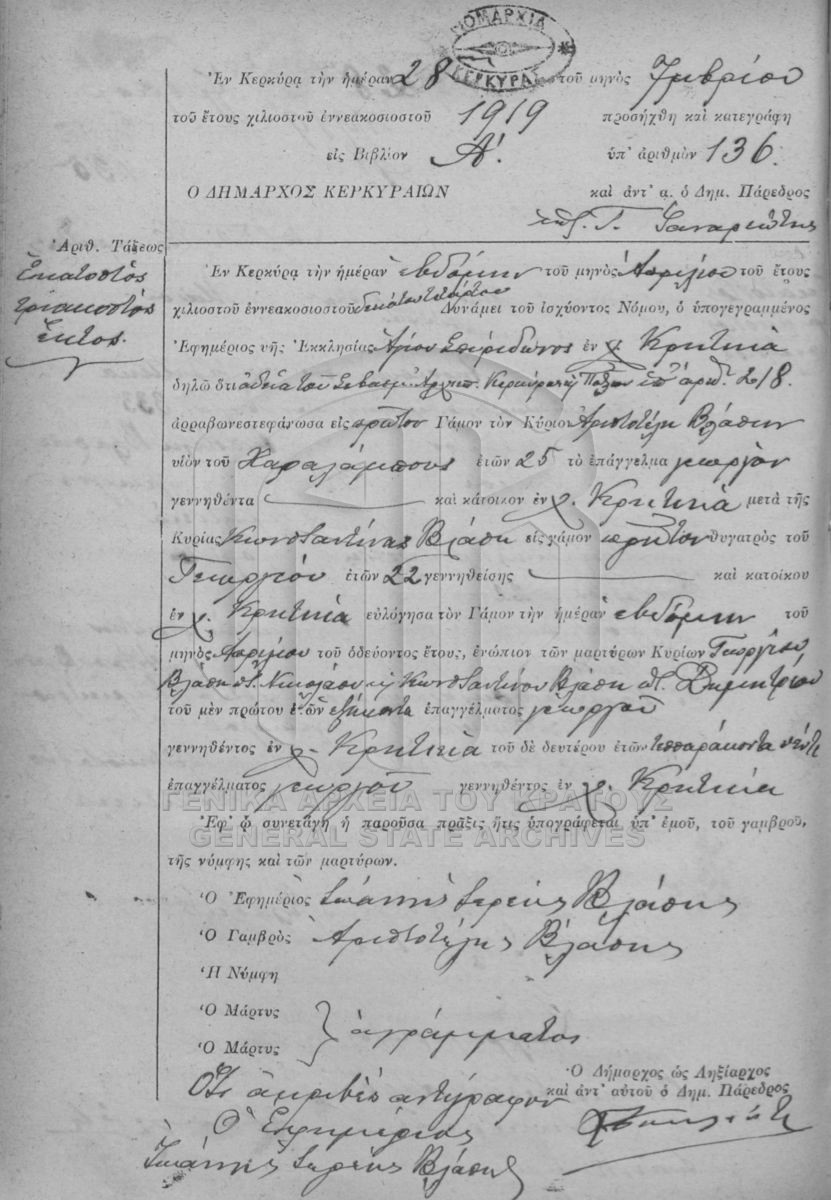 ΝΟΜΑΡΧΙΑ
ΚΕΡΚΥΡΑΣ
Ἐν Κερκύρᾳ τὴν ἡμέραν 28 τοῦ μηνὸς 7μβρίου
τοῦ ἔτους χιλιοστοῦ ἐννεακοσιοστοῦ 1919 προσήχθη καὶ κατεγράφη
εἰς Βιβλίον Α΄. ὑπ' ἀριθμὸν 136.
Ο ΔΗΜΑΡΧΟΣ ΚΕΡΚΥΡΑΙΩΝ καὶ ἀντ' α. ὁ Δημ. Πάρεδρος
Γ.
Ἀριθ. Τάξεως
Ἑκατοστὸς
τριακοστὸς
ἕκτος.
Ἐν Κερκύρᾳ τὴν ἡμέραν ἑβδόμην τοῦ μηνὸς Ἀπριλίου τοῦ ἔτους
χιλιοστοῦ ἐννεακοσιοστοῦ δεκάτου τετάρτου Δυνάμει τοῦ ἰσχύοντος Νόμου, ὁ ὑπογεγραμμένος
Ἐφημέριος τῆς Ἐκκλησίας Ἁγίου Σπυρίδωνος ἐν χ. Κρητικὰ
δηλῶ ὅτι ἀδείᾳ τοῦ Σεβασμ. Ἀρχιεπ. Κερκύρας κ Παξῶν ὑπ' ἀριθ. 218.
ἀρραβωνεστεφάνωσα εἰς πρῶτον Γάμον τὸν Κύριον Ἀριστοτέλη Βλάσην
υἱὸν τοῦ Χαραλάμπους ἐτῶν 25 τὸ ἐπάγγελμα γεωργὸν
γεννηθέντα καὶ κάτοικον ἐν χ. Κρητικὰ μετὰ τῆς
Κυρίας Κωνσταντίνας Βλάση εἰς γάμον πρῶτον θυγατρὸς τοῦ
Γεωργίου ἐτῶν 22 γεννηθείσης καὶ κατοίκου
ἐν χ. Κρητικὰ εὐλόγησα τὸν Γάμον τὴν ἡμέραν ἑβδόμην τοῦ
μηνὸς Ἀπριλίου τοῦ ὁδεύοντος ἔτους, ἐνώπιον τῶν μαρτύρων Κυρίων Γεωργίου
Βλάση Νικολάου κ Κωνσταντίνου Βλάση Δημητρίου
τοῦ μὲν πρώτου ἐτῶν ἑξήκοντα ἐπαγγέλματος γεωργοῦ
γεννηθέντος ἐν χ. Κρητικὰ τοῦ δὲ δευτέρου ἐτῶν τεσσαράκοντα πέντε
ἐπαγγέλματος γεωργοῦ γεννηθέντος ἐν χ. Κρητικὰ
ΓΕΝΙΚΑ ΑΡΧΕΙΑ ΤΟΥ ΚΡΑΤΟΥΣ
GENERAL STATE ARCHIVES
Ἐφ' ᾧ συνετάγη ἡ παροῦσα πρᾶξις ἥτις ὑπογράφεται ὑπ' ἐμοῦ, τοῦ γαμβροῦ,
τῆς νύμφης καὶ τῶν μαρτύρων.
Ὁ Ἐφημέριος Ἰωάννης Ἱερεὺς Βλάσης
Ὁ Γαμβρὸς Ἀριστοτέλης Βλάσης
Ἡ Νύμφη
Ὁ Μάρτυς
Ὁ Μάρτυς } ἀγράμματος
Ὁ Δήμαρχος ὡς Ληξίαρχος
καὶ ἀντ' αὐτοῦ ὁ Δημ. Πάρεδρος
Ὅτι ἀκριβὲς ἀντίγραφον
Ὁ Ἐφημέριος
Ἰωάννης Ἱερεὺς Βλάσης